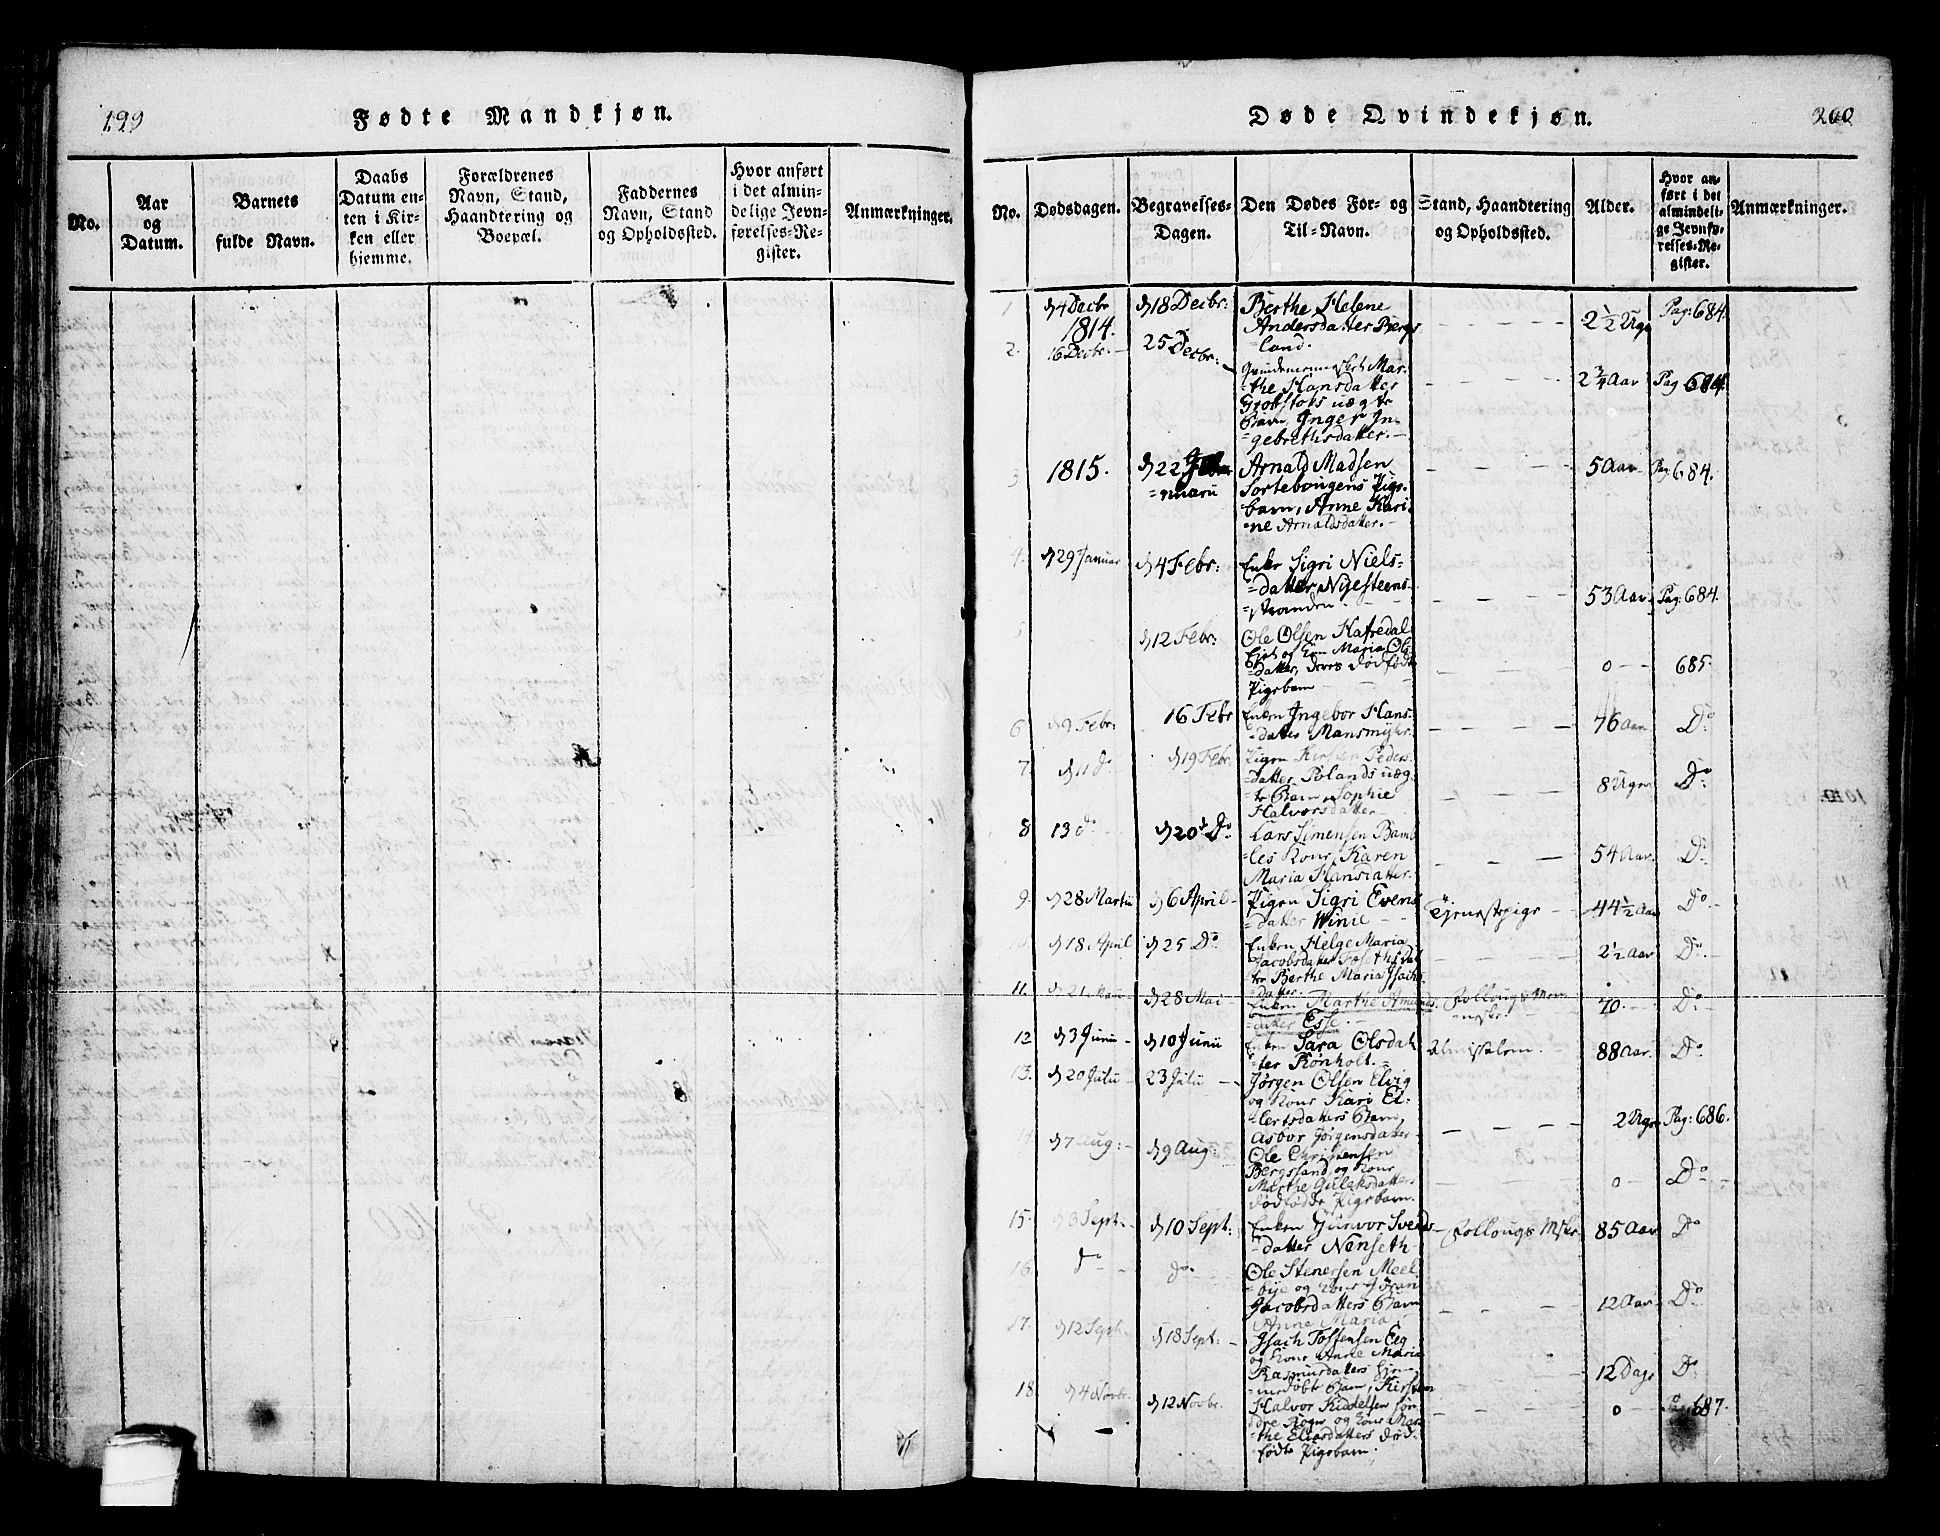 199
Fødte Mandkjøn.
No.
Aar
og
Datum.
Barnets
fulde Navn.
Daabs
Datum en-
ten i Kir-
ken eller
hjemme.
Forældrenes
Navn, Stand,
Haandtering og
Boepæl.
Faddernes
Navn, Stand
og Opholdssted.
Hvor anført
i det almin-
delige Jevn-
førelses-Re-
gister.
Anmærkninger.
Døde Qvindekjøn.
200
No.
Dødsdagen.
Begravelses-
Dagen.
Den Dødes For- og
Til-Navn.
Stand, Haandtering
og Opholdssted.
Alder.
Hvor an-
ført i det
almindeli-
ge Jevnfø-
relses-Re-
gister.
Anmærkninger.
1 d 4 Decbr 1814. d 18 Decbr: Berthe Helene
Andersdatter Bergs
=land. 2½ Ugr Pag: 684.
2. 16 Decbr: 25 Decbr: Qvindemennisket Mar-
=the Hansdatter
Grobstoks uægte
Barn, Inger In-
=gebrethsdatter. 2¾ Aar Pag 684.
3 1815. d 22 Ja
=nuarii Arnald Madsen
Sortebougens Pige-
barn, Anne Kari-
=ne Arnaldsdatter. 5 Aar Pag: 684.
4. d 29 Januar d 4 Febr: Enke Sigri Niels-
=datter Nyesteens-
=stranden. 53 Aar Pag: 684.
5 d 12 Febr: Ole Olsen Hafredal
Ejet og Kone Maria Ols
=datter, deres dødfødte
Pigebarn 0 685.
6 d 9 Febr: 16 Febr Enken Ingebor Hans-
=datter Mansmyhr. 76 Aar Do
7. d 11 do d 19 Febr. Pigen Kirsten Peders-
datter Polands uæg-
=te Barn, Sophie
Halvorsdatter 8 Ugr Do
8 13 do d 20 Do Lars Simensen Bamb-
=les Kone, Karen
Maria Hansdatter. 54 Aar. Do
9. d 28 Martii d 6 April Pigen Sigri Evens
=datter Winie Tjenestepige 44½ Aar Do
10 d 18 April d 25 Do Enken Helge Maria
Jacobsdatter Foseths Dat-
ter Berthe Maria Isachs
=datter. 2½ Aar Do
11. d 21 Maii d 28 Mai Enken Marthe Amunds-
datter Esse. Follougs Men-
neske. 70. Do
12 d 3 Junii d 10 Junii Enken Sara Olsdat-
=ter Rønholt. Almisselem. 88 Aar. Do
13. d 20 Julii 23 Julii Jørgen Olsen Elvig
og Kone Kari El-
=lertsdatters Barn,
Asbor Jørgensdatter 2 Ugr Pag: 686.
14 d 7 Aug: d 9 Aug: Ole Christensen
Bergsland og Kone
Marthe Gulaksdatters
dødfødde Pigebarn. 0 Do
15. d 3 Sept: d 10 Sept: Enken Gunvor Svends
=datter Nenseth Follougs Mskr 85 Aar Do
16 do do Ole Stenersen Meel-
=bye og Kone Jøran
Jacobsdatters Barn
Anne Maria 12 Aar Do
17. d 12 Sept. d 18 Sept: Isach Tostensen Eeg
og Kone Anne Maria
Rasmusdatters hjem-
=medøbt Barn, Kirsten 12 Dage Do
18 d 4 Novbr. d 12 Novbr. Halvor Kiddelsen søn-
dre Rogn og Kone Mar-
=the Eliasdatters død-
=fødte Pigebarn; 0 Pag: 687.